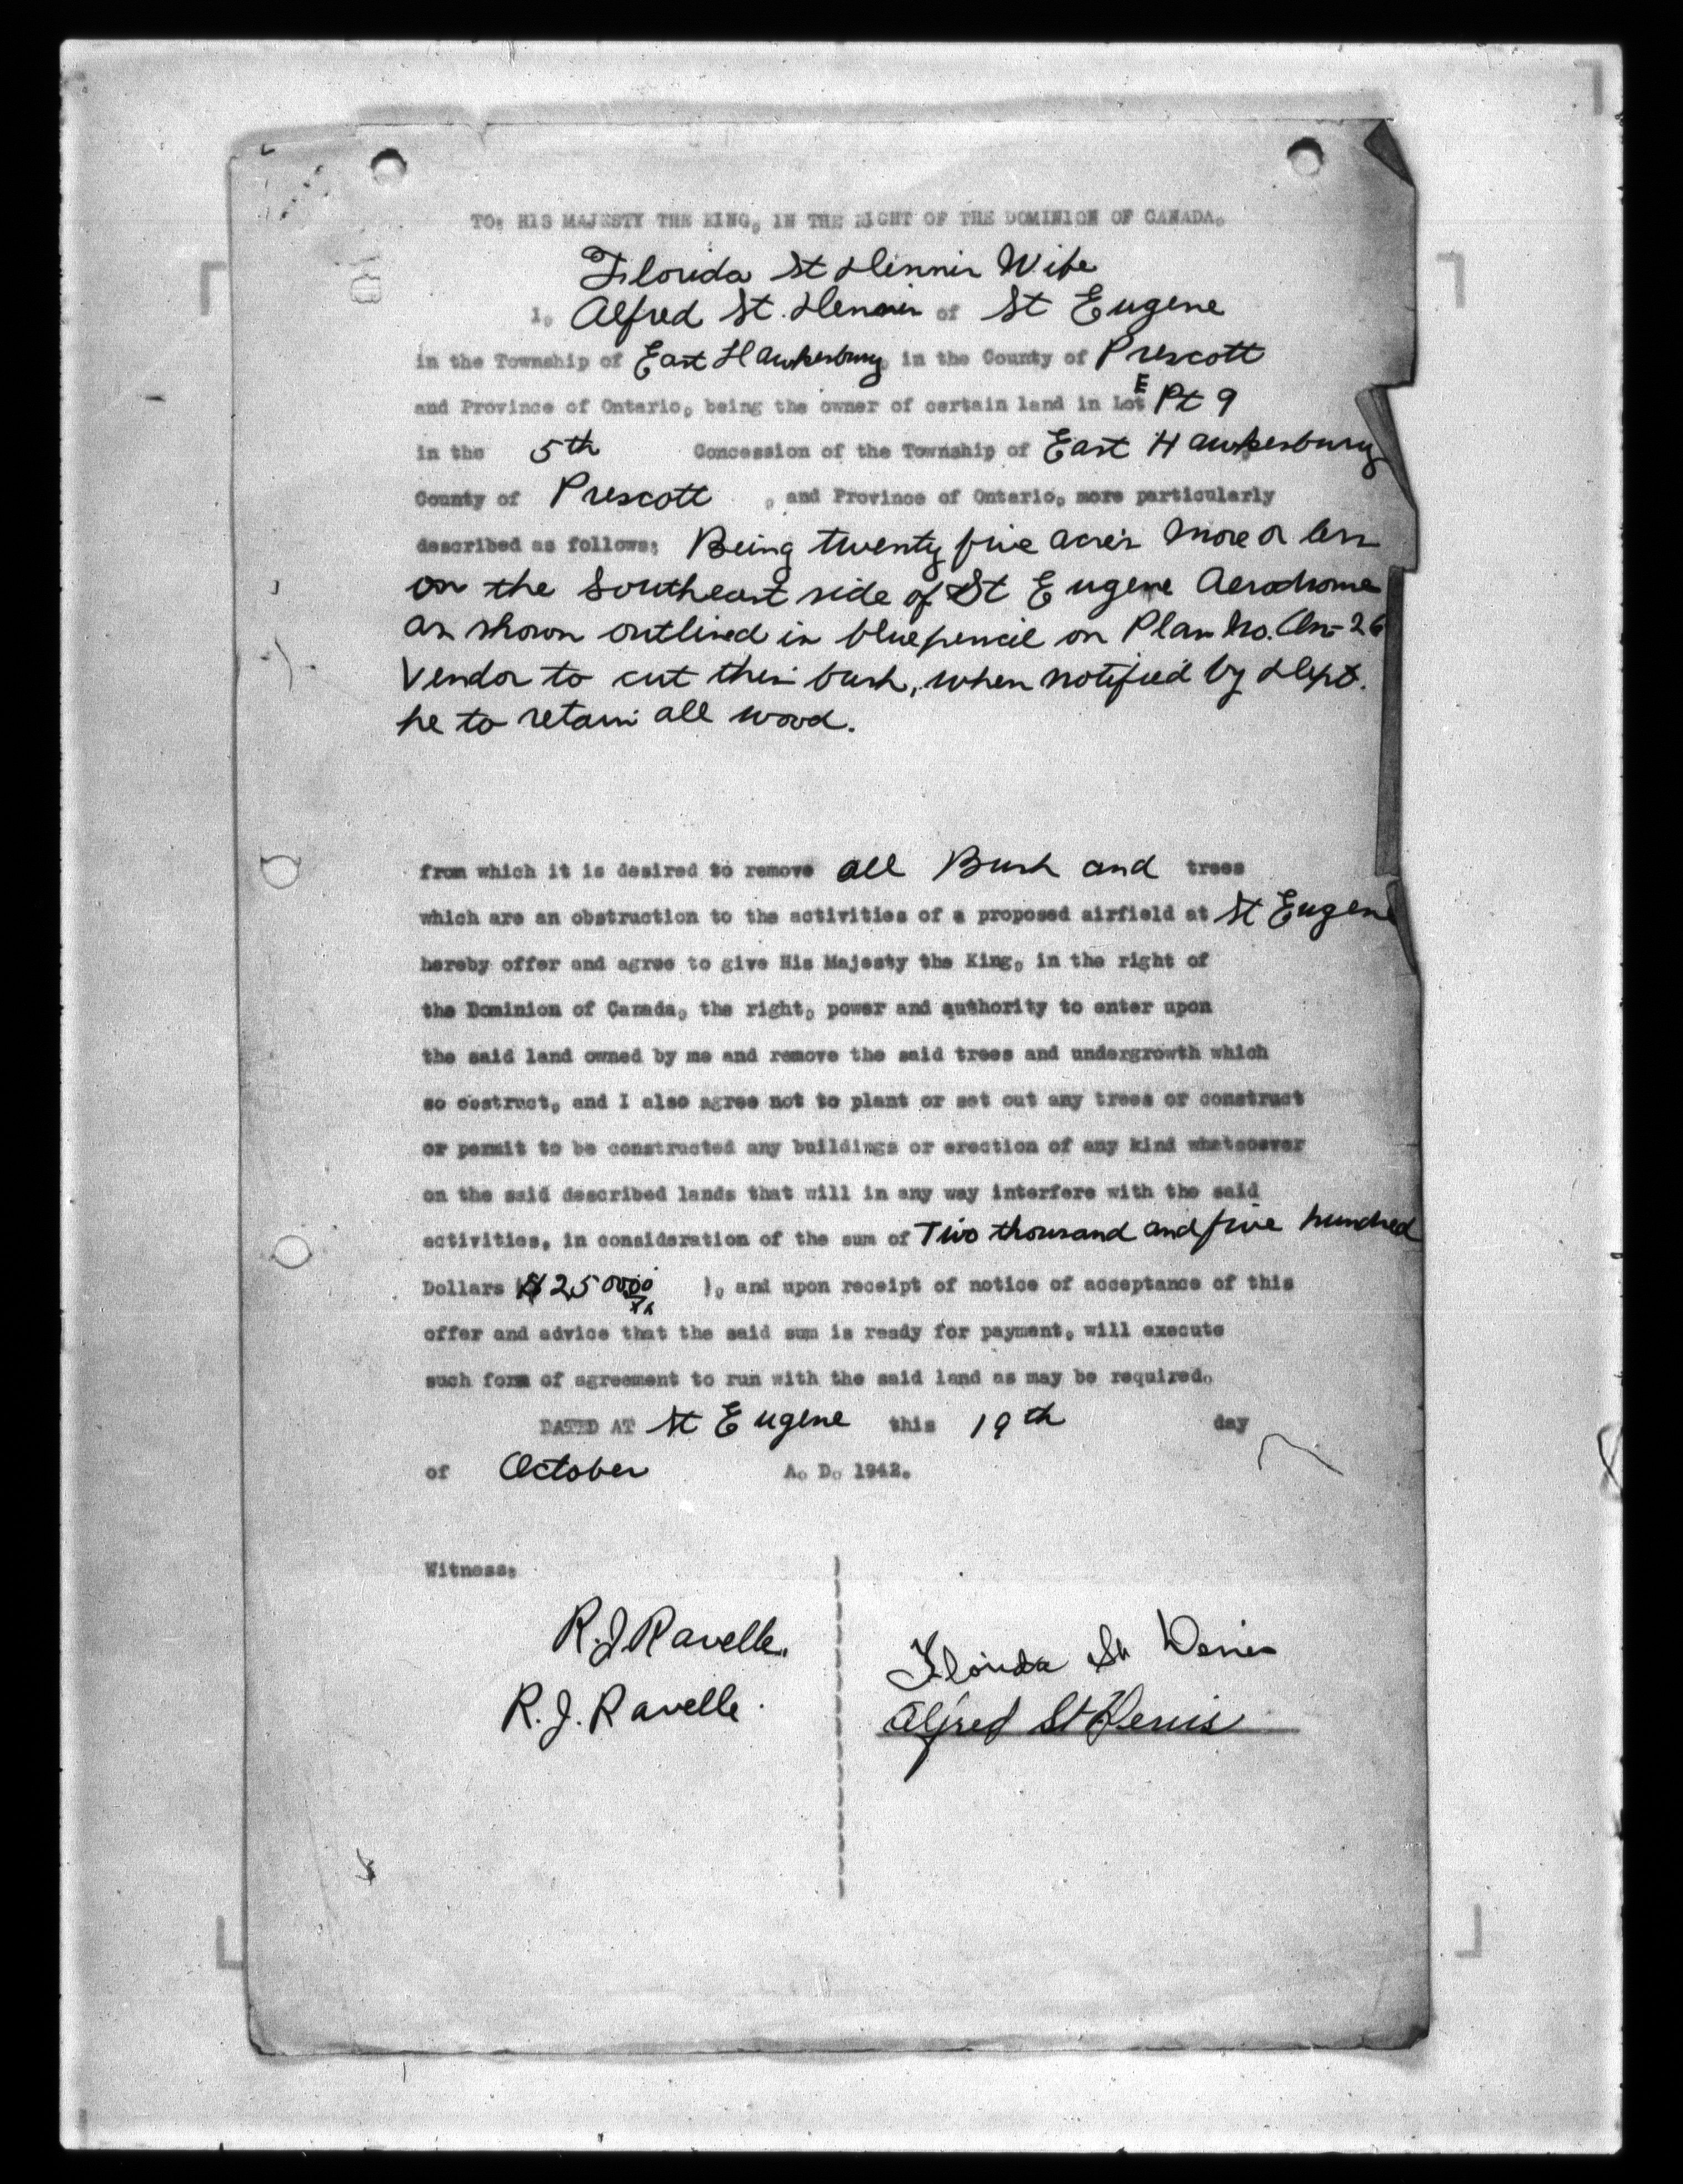 TO: HIS MAJESTY THE KING, IN THE RIGHT OF THE DOMINION OF CANADA.
Florida St Dennis Wife
I, Alfred St. Dennis of St Eugene
in the Township of East Hawkesbury, in the County of Prescott
and Province of Ontario, being the owner of certain land in Lot E Pt 9
in the 5th Concession of the Township of East Hawkesbury
County of Prescott , and Province of Ontario, more particularly
described as follows: Being twenty five acres more or less
on the Southeast side of St Eugene Aerodrome
as shown outlined in blue pencil on Plan No. 26
Vendor to cut this bush, when notified by Dept.
he to retain all wood.
from which it is desired to remove all Bush and trees
which are an obstruction to the activities of a proposed airfield at St Eugene
hereby offer and agree to give His Majesty the King, in the right of
the Dominion of Canada, the right, power and authority to enter upon
the said land owned by me and remove the said trees and undergrowth which
so obstruct, and I also agree not to plant or set out any trees or construct
or permit to be constructed any buildings or erection of any kind whatsoever
on the said described lands that will in any way interfere with the said
activities, in consideration of the sum of Two thousand and five hundred
Dollars ($2500.00 ), and upon receipt of notice of acceptance of this
offer and advice that the said sum is ready for payment, will execute
such form of agreement to run with the said land as may be required.
DATED AT St Eugene this 19th day
of October A. D. 1942.
Witness:
R.J. Ravelle. Florida St Denis
R. J. Ravelle. Alfred St Denis